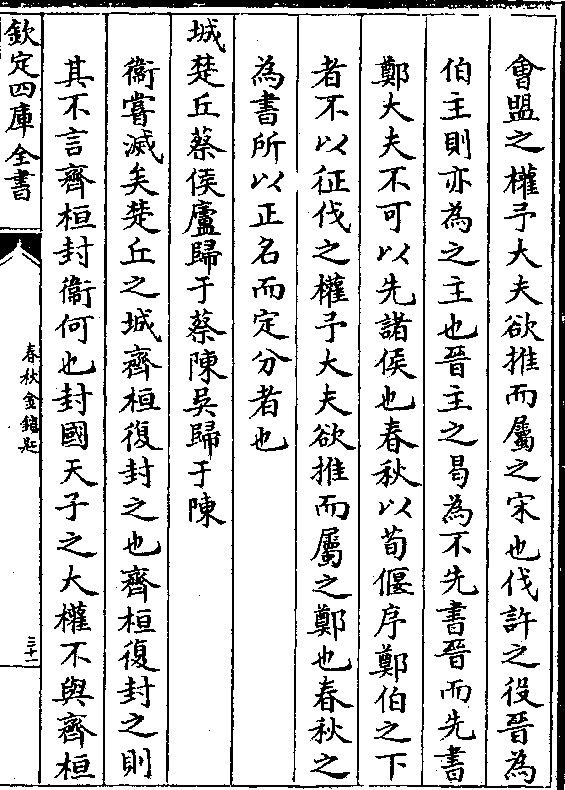 會盟之權予大夫欲推而屬之宋也伐許之役晉為
伯主則亦為之主也晉主之曷為不先書晉而先書
鄭大夫不可以先諸侯也春秋以荀偃序鄭伯之下
者不以征伐之權予大夫欲推而屬之鄭也春秋之
為書所以正名而定分者也
城楚丘蔡侯廬歸于蔡陳吳歸于陳
衞嘗滅矣楚丘之城齊桓復封之也齊桓復封之則
其不言齊桓封衞何也封國天子之大權不與齊桓
欽定四庫全書
春秋金鎖匙
三十一